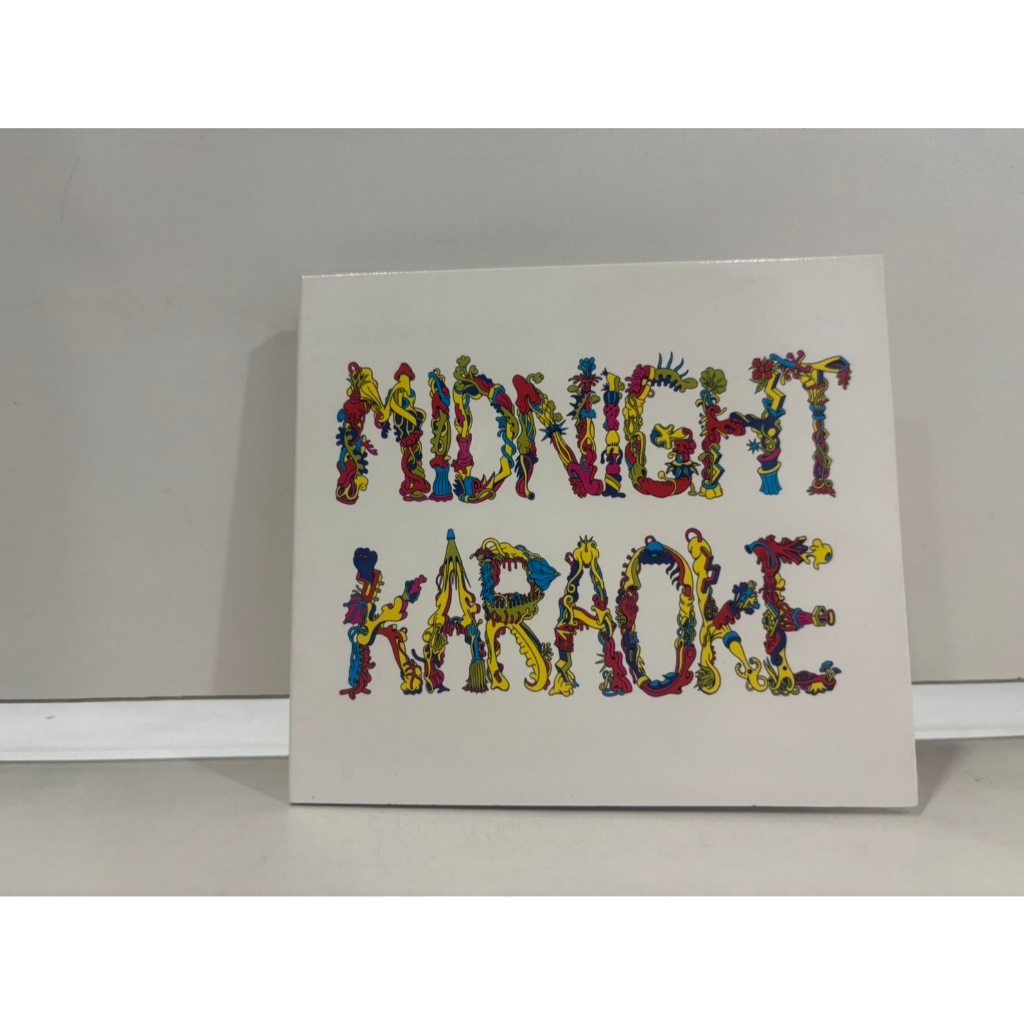 MIDNIGHT
KARAOKE